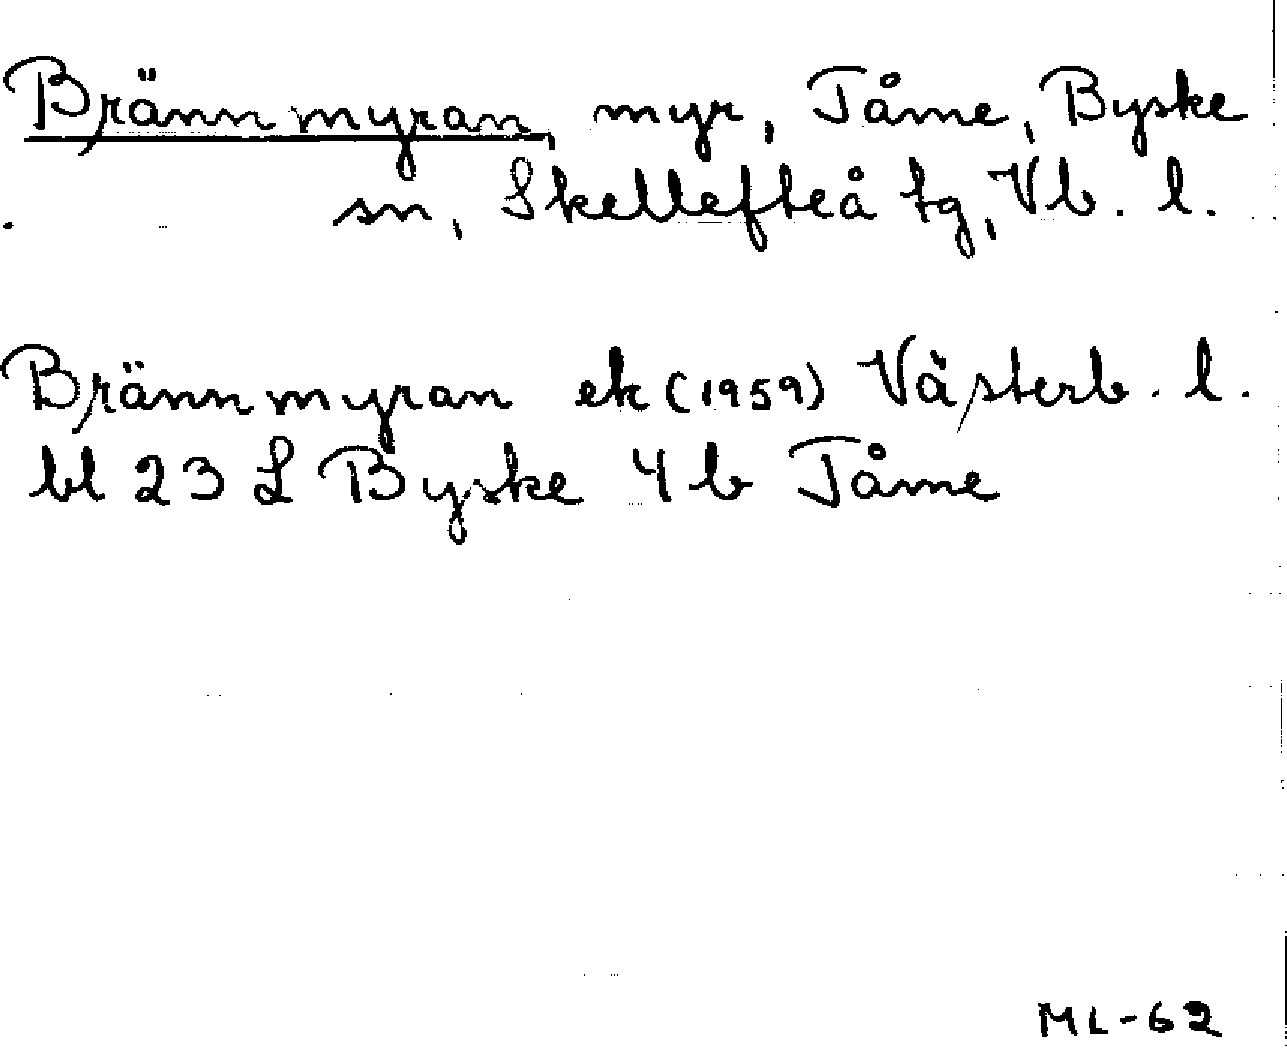 Brännmyran, myr, Tåme, Byske
sn, Skellefteå tg, Vb. l.
Brännmyran ek (1959) Västerb. l.
bl 23 L Byske 4 b Tåme
ML-62